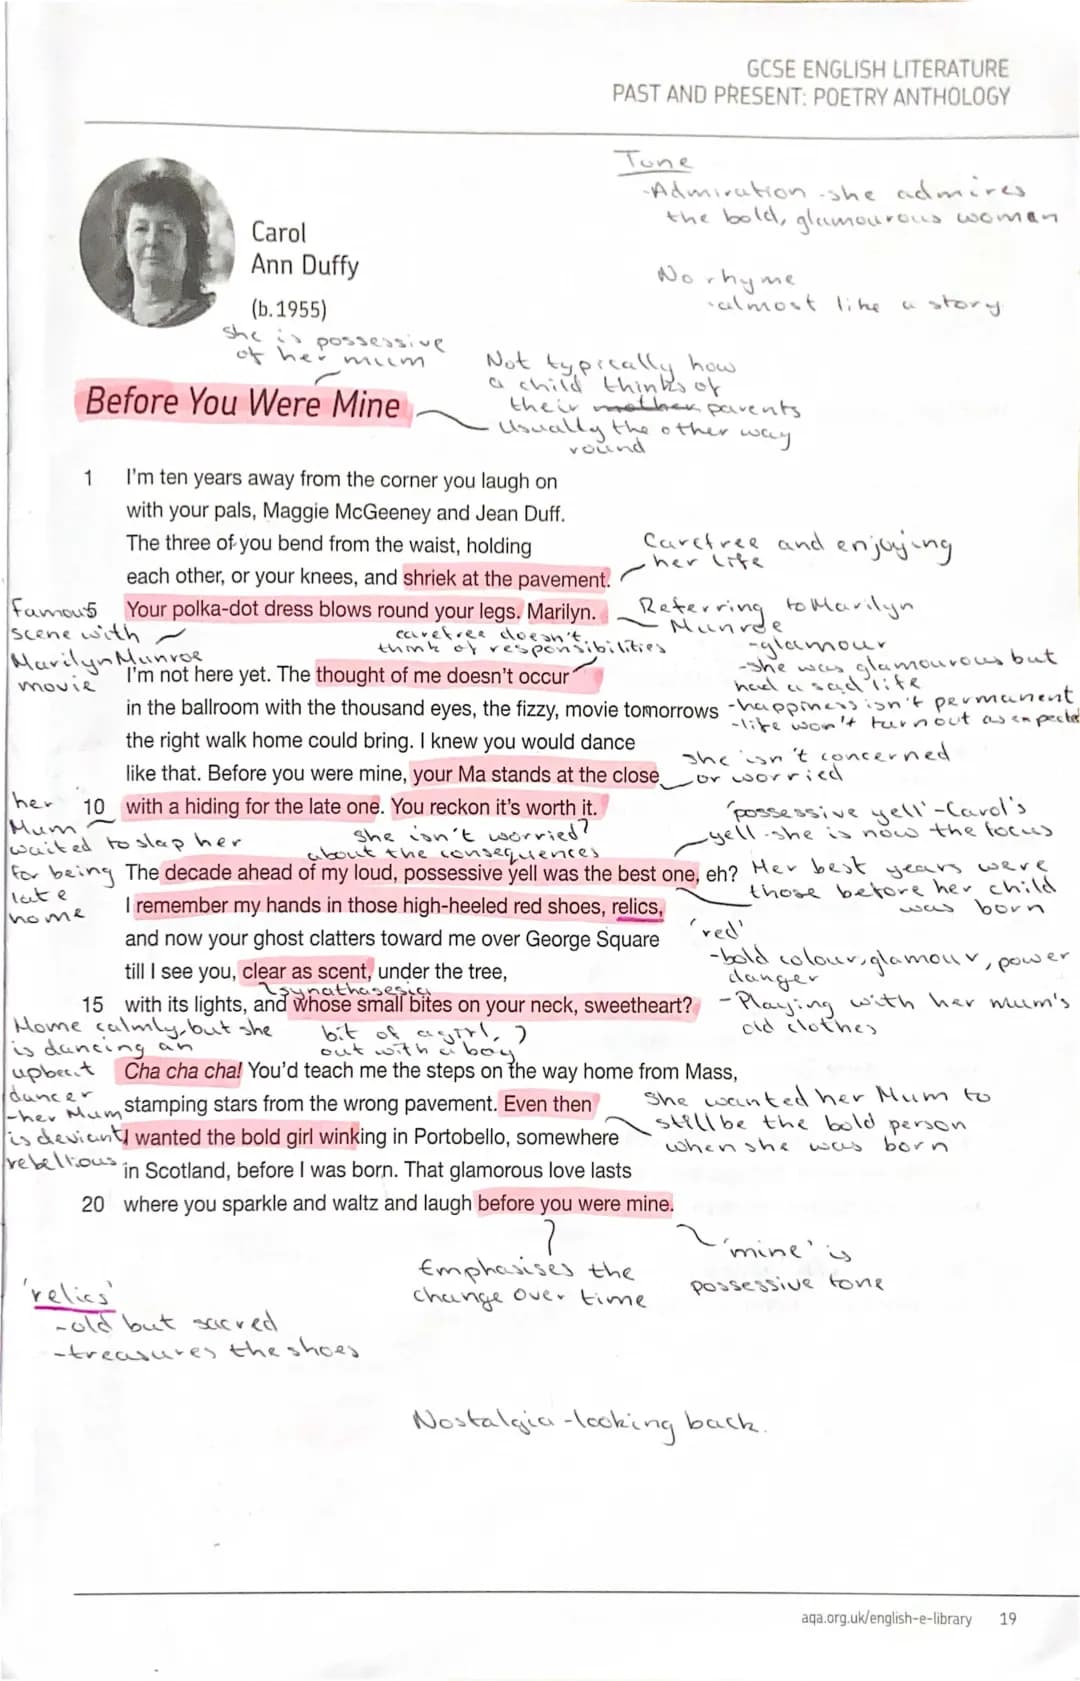 GCSE ENGLISH LITERATURE
PAST AND PRESENT: POETRY ANTHOLOGY
Tone
-Admiration -she admires
the bold, glamourous women
Carol
Ann Duffy
(b. 1955)
No rhyme
-almost like a story
she is possessive
of her mum
Not typically how
a child thinks of
their mother parents
Usually the other way
round
Before You Were Mine
1 I'm ten years away from the corner you laugh on
with your pals, Maggie McGeeney and Jean Duff.
The three of you bend from the waist, holding
each other, or your knees, and shriek at the pavement.
Your polka-dot dress blows round your legs. Marilyn.
Carefree and enjoying
her life
Famous
scene with
Marilyn Munroe
movie
Referring to Marilyn
Munroe
-glamour
-she was glamourous but
had a sad life
-happiness isn't permanent
-life won't turn out as expected
carefree doesn't
think of responsibilities
I'm not here yet. The thought of me doesn't occur
in the ballroom with the thousand eyes, the fizzy, movie tomorrows
the right walk home could bring. I knew you would dance
like that. Before you were mine, your Ma stands at the close
10 with a hiding for the late one. You reckon it's worth it.
she isn't concerned
or worried
her
Mum
waited to slap her
for being
late
home
she isn't worried?
about the consequences
'possessive yell' -Carol's
yell -she is now the focus
The decade ahead of my loud, possessive yell was the best one, eh?
I remember my hands in those high-heeled red shoes, relics,
and now your ghost clatters toward me over George Square
till I see you, clear as scent, under the tree,
15 with its lights, and whose small bites on your neck, sweetheart?
Her best years were
those before her child
was born
'red'
-bold colour, glamour, power
danger
-Playing with her mum's
old clothes
synathasesia
bit of a girl,
out with a boy
Home calmly, but she
is dancing an
upbeat
dancer
-her Mum
is deviant
rebellious
Cha cha cha! You'd teach me the steps on the way home from Mass,
stamping stars from the wrong pavement. Even then
I wanted the bold girl winking in Portobello, somewhere
in Scotland, before I was born. That glamorous love lasts
20 where you sparkle and waltz and laugh before you were mine.
She wanted her Mum to
still be the bold person
when she was born
Emphasises the
change over time
'mine' is
possessive tone
'relics'
-old but sacred
-treasures the shoes
Nostalgia -looking back.
aqa.org.uk/english-e-library 19